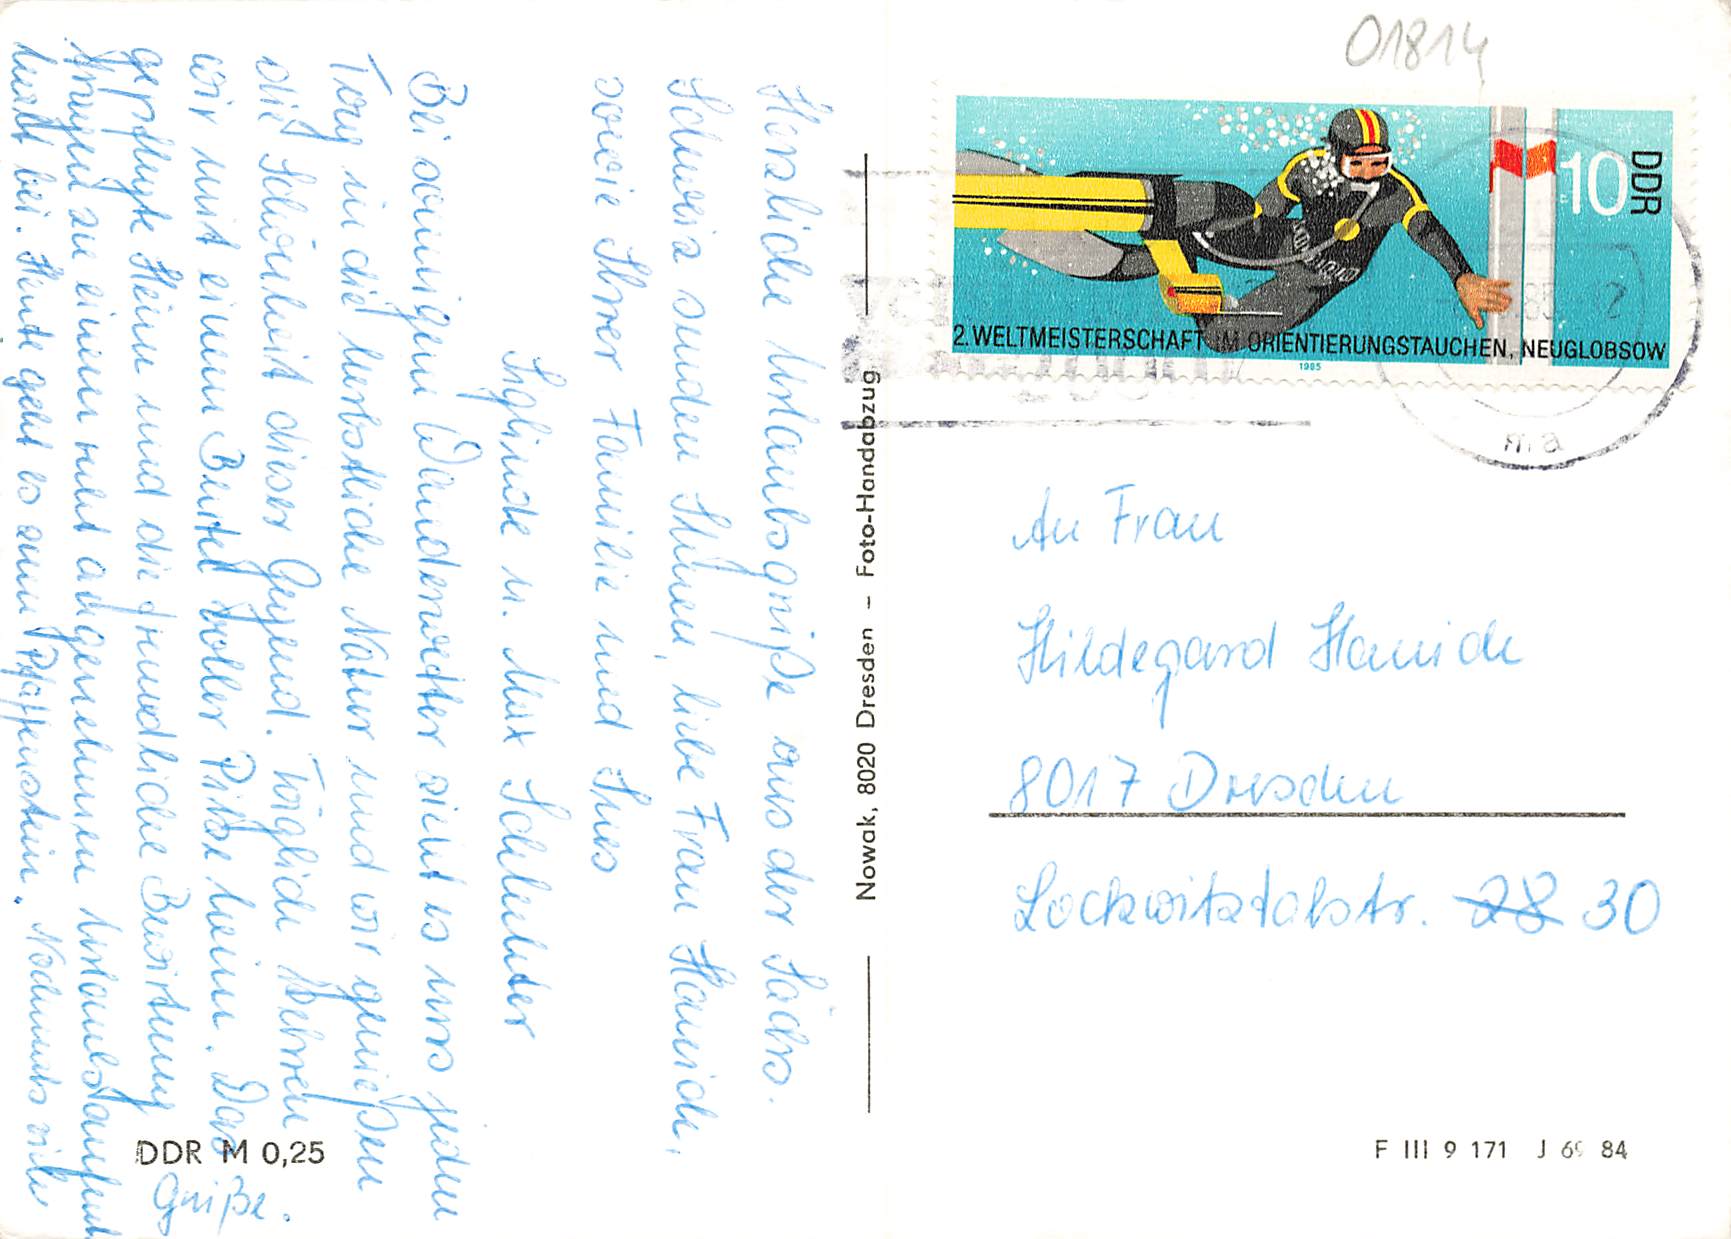 Herzliche Urlaubsgrüße aus der Sächs.
Schweiz senden Ihnen, liebe Frau Hanich,
sowie Ihrer Familie und Ines
Sieglinde u. Max Schlechter
Bei sonnigem Wanderwetter zieht es uns jeden
Tag in die herbstliche Natur und wir genießen
die Schönheit dieser Gegend. Täglich kehren
wir mit einem Beutel voller Pilze heim. Das
gepflegte Heim und die freundliche Bewirtung
tragen zu einem recht angenehmen Urlaubsaufent
halt bei. Heute geht es zum Pfaffenstein. Nochmals viele
Grüße.
DDR M 0,25
Nowak, 8020 Dresden – Foto-Handabzug
01814
DDR
10
2. WELTMEISTERSCHAFT IM ORIENTIERUNGSTAUCHEN, NEUGLOBSOW
1985
An Frau
Hildegard Hanich
8017 Dresden
Lockwitztalstr. 28 30
F III 9 171 J 69 84